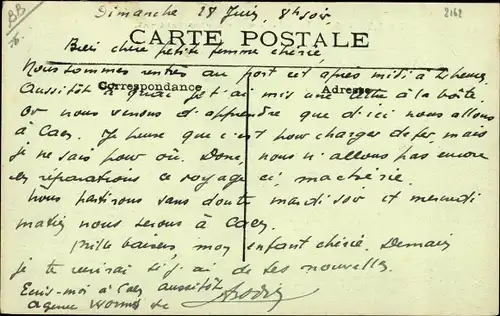 BB
2162
Dimanche 28 Juin, 8h soir
CARTE POSTALE
Bien chère petite femme chérie,
Nous sommes rentrés au port cet après midi à 2 heures.
Correspondance
Adresse
Aussitôt à quai je t'ai mis une lettre à la boîte.
Or nous venons d'apprendre que d'ici nous allons
à Caen. Je pense que c'est pour charger de fer, mais
je ne sais pour où. Donc, nous n'allons pas encore
en réparations ce voyage ci, ma chérie.
Nous partirons sans doute mardi soir et mercredi
matin nous serons à Caen.
Mille baisers, mon enfant chérie. Demain
je te dirai si j'ai de tes nouvelles
Écris-moi à Caen aussitôt
agence Worms